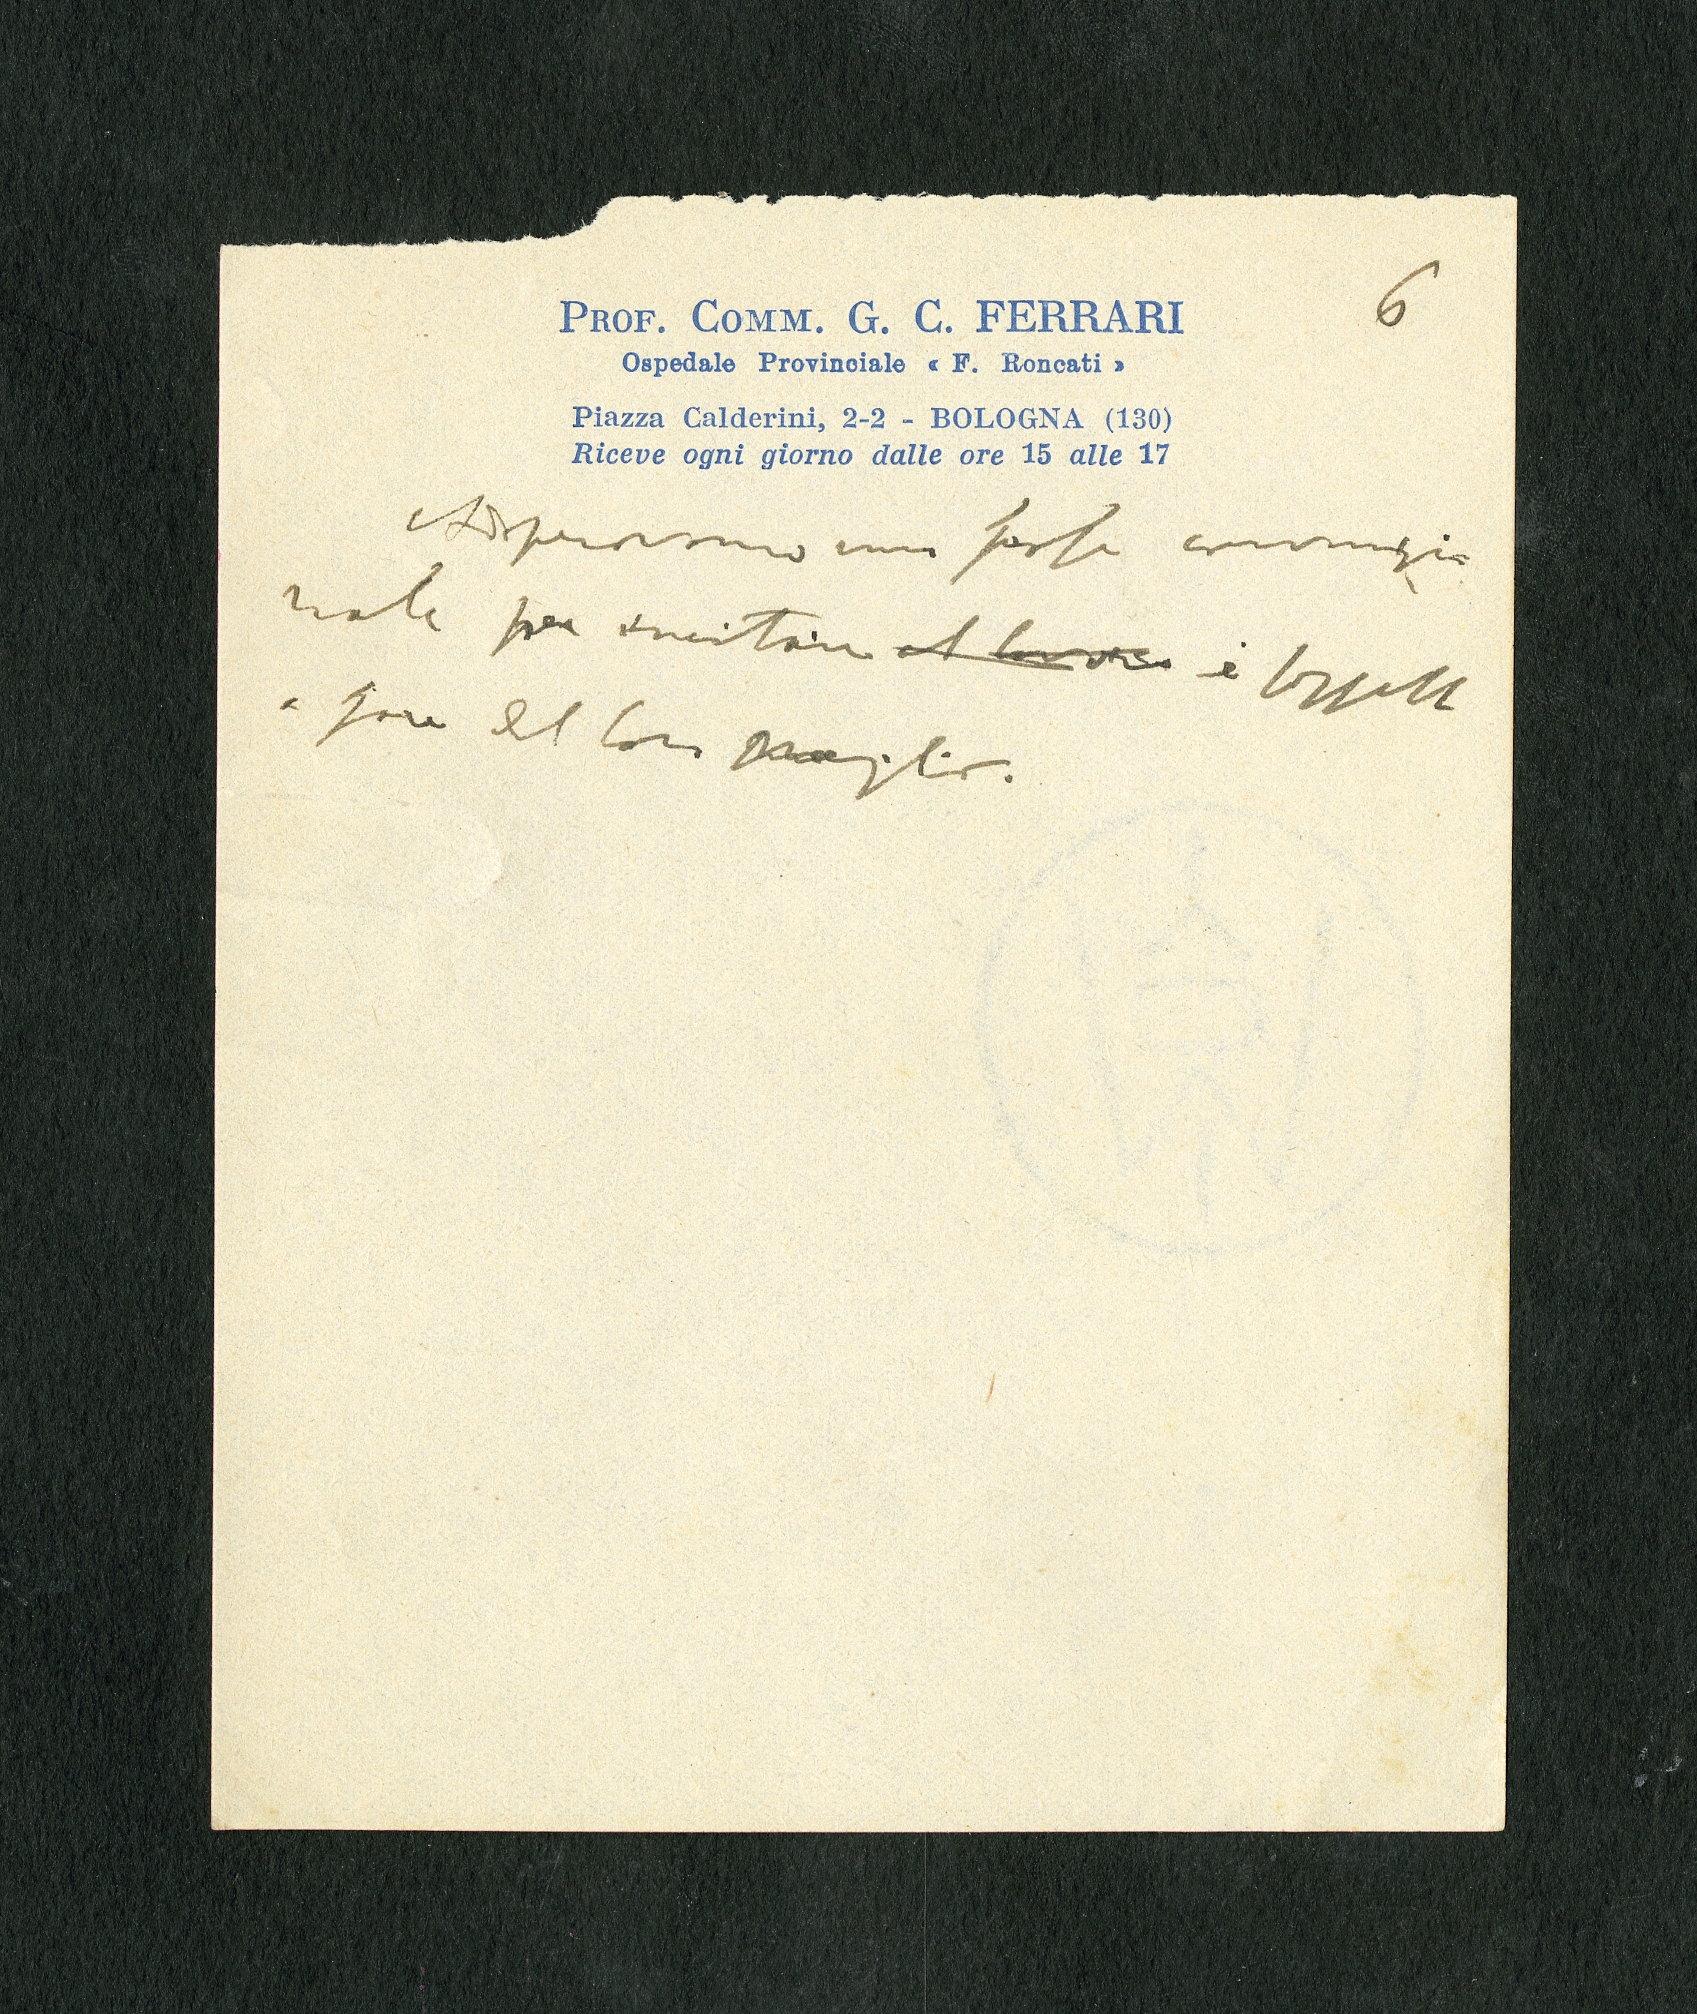 6
PROF. COMM. G. C. FERRARI
Ospedale Provinciale « F. Roncati »
Piazza Calderini, 2-2 - BOLOGNA (130)
Riceve ogni giorno dalle ore 15 alle 17
Adoperavamo una frase convenzio
nale per incitare al lavoro i soggetti
a fare del loro meglio.